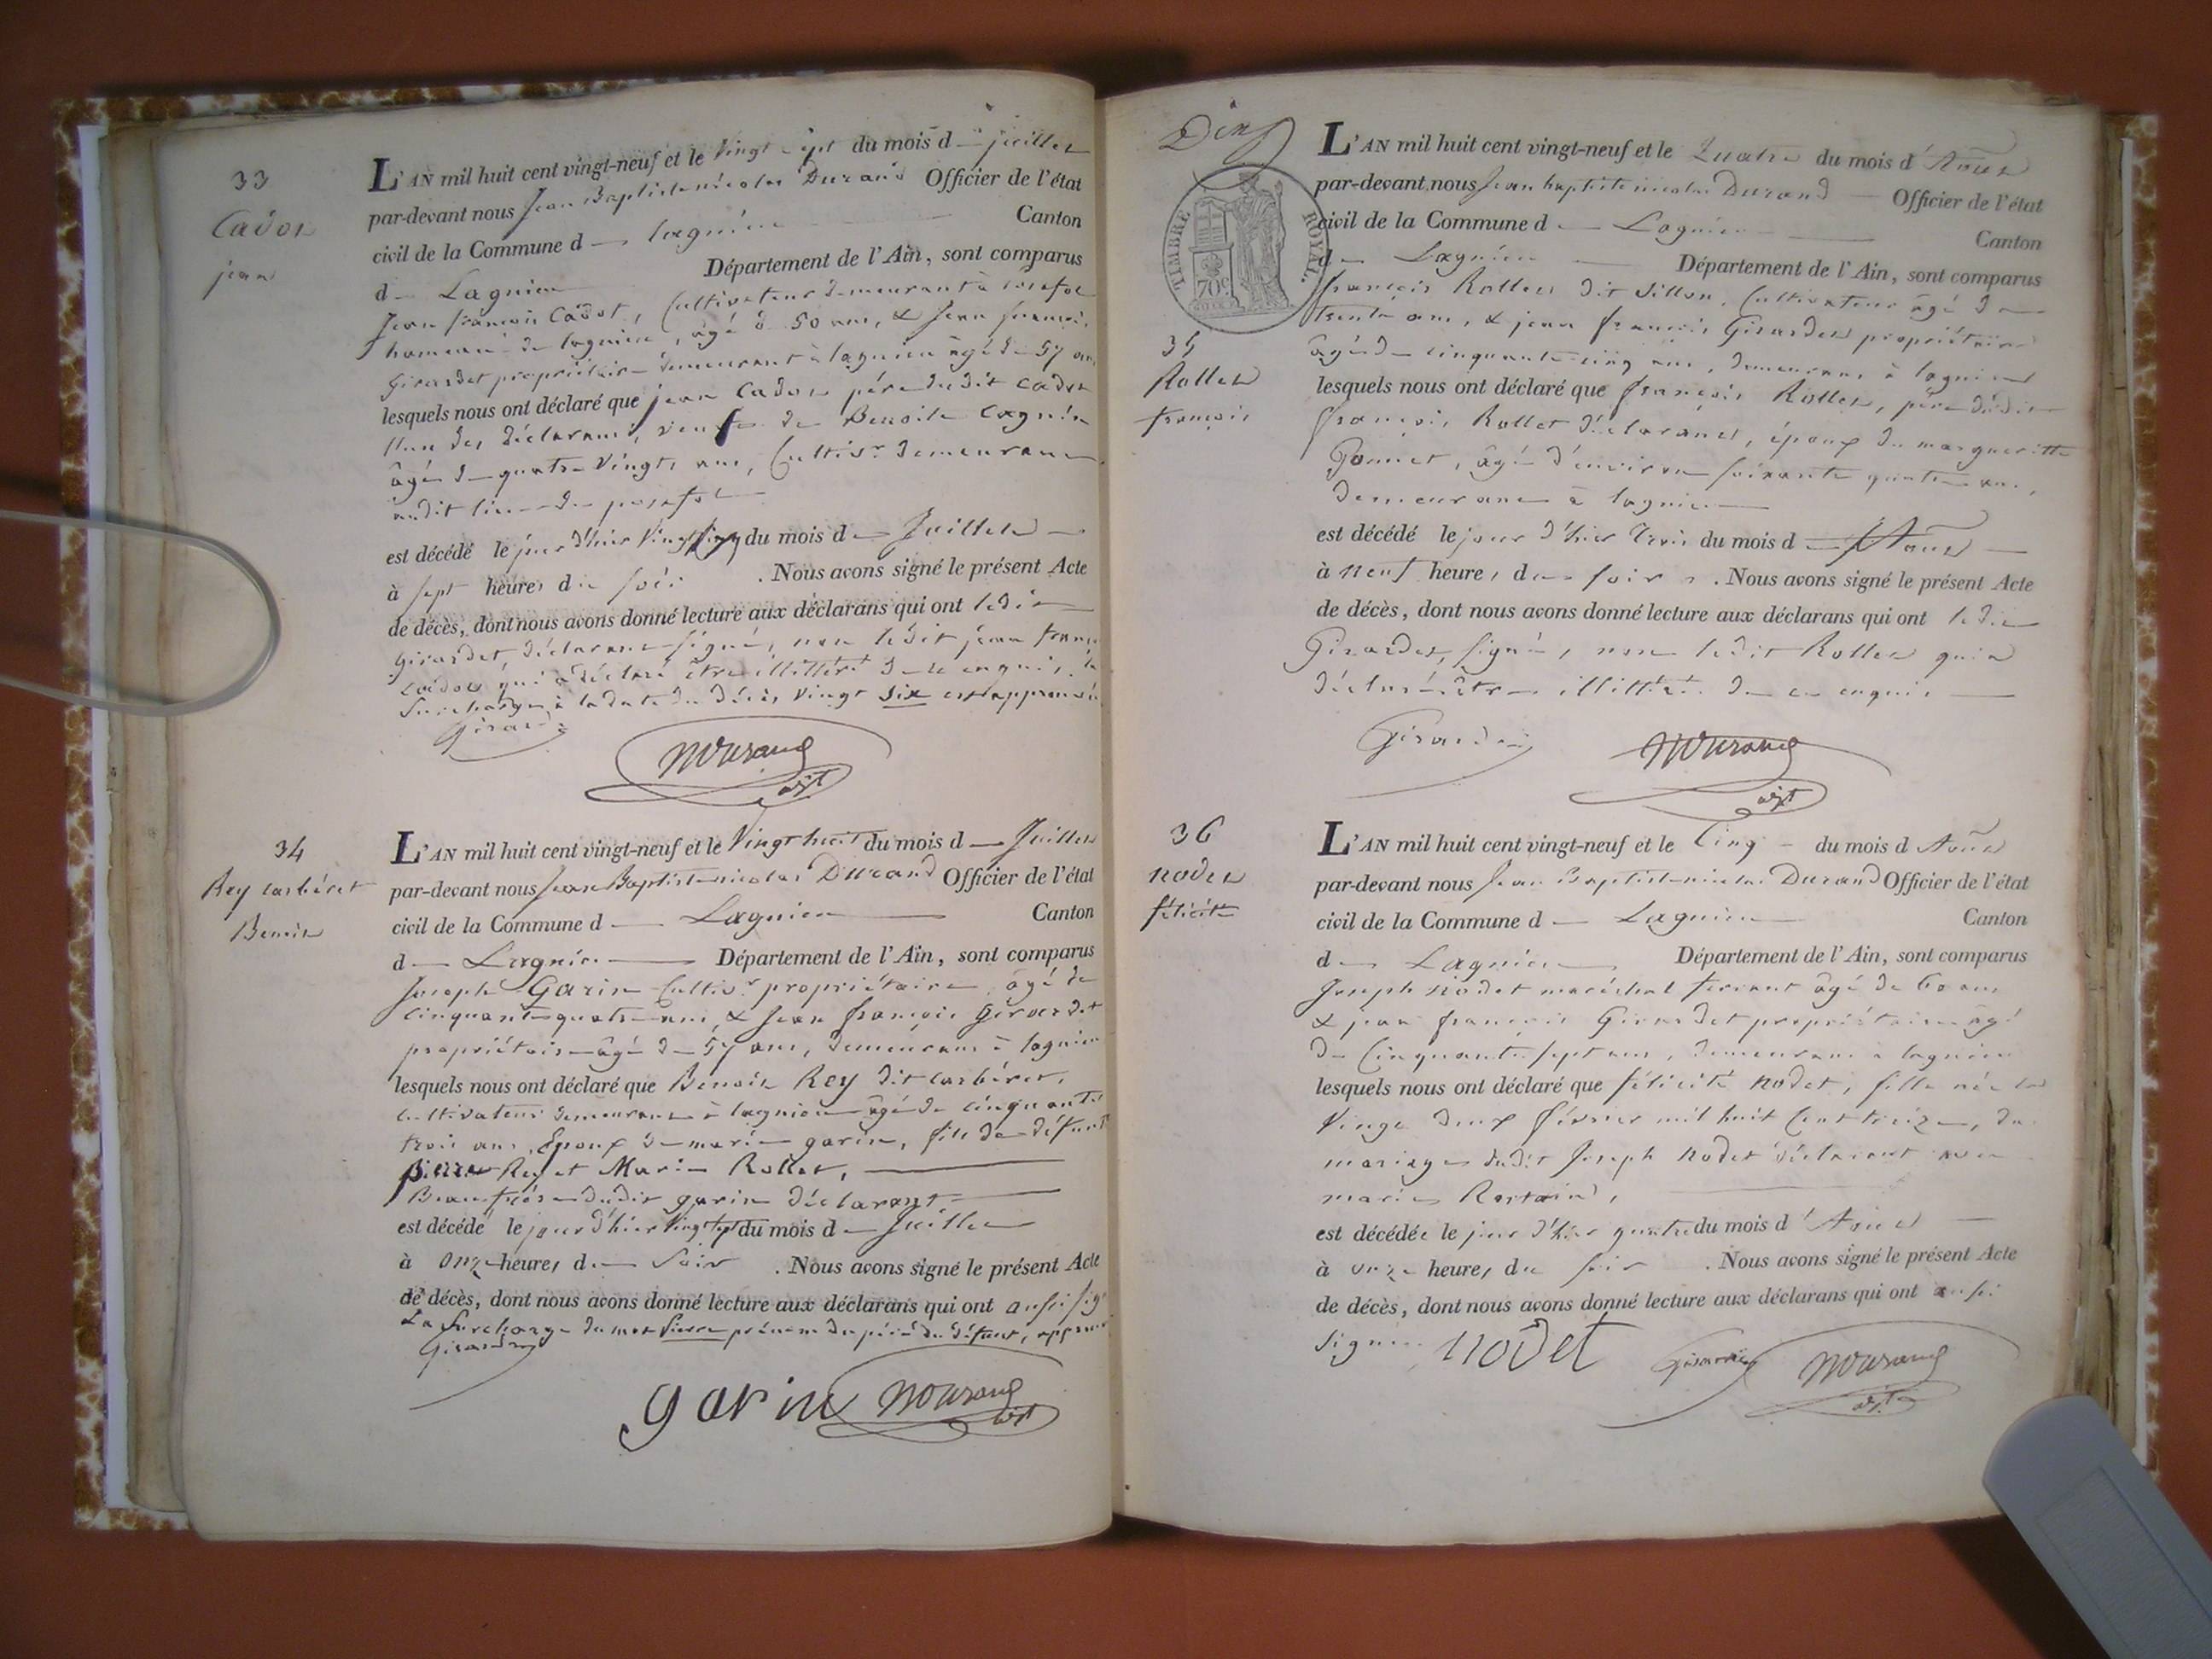 33
Cadot
jean
L'AN mil huit cent vingt-neuf et le Vingt sept du mois d juillet
par-devant nous Jean Baptiste nicolas Durand Officier de l'état
civil de la Commune d lagnieu Canton
d Lagnieu Département de l'Ain, sont comparus
Jean françois Cadot, Cultivateur demeurant à posafol
hameau de lagnieu, âgé de 50 ans, & Jean françois
Girardet propriétaire demeurant à lagnieu âgé de 57 ans
lesquels nous ont déclaré que jean Cadot père dudit Cadot
l'un des déclarans, veuf de Benoite Cagnin
âgé de quatre Vingts ans, Cultivr. demeurant
audit lieu de posafol
est décédé le jour d'hier Vingt six du mois d Juillet
à sept heures du soir . Nous avons signé le présent Acte
de décès, dont nous avons donné lecture aux déclarans qui ont ledit
Girardet déclarant signé, non ledit jean franç
Cadot qui a déclaré être illittéré de ce enquis, la
Surcharge à la date du décès vingt six est approuvée
Girardet
NDurand
adjt
34
Rey carbéret
Benoit
L'AN mil huit cent vingt-neuf et le Vingt huit du mois d Juillet
par-devant nous Jean Baptiste nicolas Durand Officier de l'état
civil de la Commune d Lagnieu Canton
d Lagnieu Département de l'Ain, sont comparus
Joseph Garin Cultivr. propriétaire âgé de
cinquante quatre ans, & Jean françois Girardet
propriétaire âgé de 57 ans, demeurans à lagnieu
lesquels nous ont déclaré que Benoit Rey dit carbéret,
Cultivateur demeurant à lagnieu âgé de cinquante
trois ans, Epoux de marie garin, fils de défunt
pierre Rey et Marie Rollet,
Beaufrère dudit garin déclarant
est décédé le jour d'hier Vingt sept du mois d Juillet
à Onze heures d Soir . Nous avons signé le présent Acte
de décès, dont nous avons donné lecture aux déclarans qui ont aussi signé
La Surcharge du mot Pierre prénom du père du défunt, approuvé
Girardet
garin NDurand
adjt
Dix
TIMBRE ROYAL.
70c
35
Rollet
françois
L'AN mil huit cent vingt-neuf et le Quatre du mois d'Aout
par-devant nous Jean baptiste nicolas Durand Officier de l'état
civil de la Commune d Lagnieu Canton
d Lagnieu Département de l'Ain, sont comparus
françois Rollet dit Villon, Cultivateur âgé de
trente ans, & jean françois Girardet propriétaire
âgé de cinquante-cinq ans, demeurans à lagnieu
lesquels nous ont déclaré que françois Rollet, père dudit
françois Rollet déclarant, époux de margueritte
Ponnet, âgé d'environ soixante quinze ans,
demeurant à lagnieu
est décédé le jour d'hier Trois du mois d Aout
à neuf heures du soir . Nous avons signé le présent Acte
de décès, dont nous avons donné lecture aux déclarans qui ont ledit
Girardet signé, non ledit Rollet qui a
déclaré être illittéré de ce enquis
Girardet NDurand
adjt
36
nodet
félicité
L'AN mil huit cent vingt-neuf et le Cinq du mois d Aout
par-devant nous Jean Baptiste nicolas Durand Officier de l'état
civil de la Commune d Lagnieu Canton
d Lagnieu Département de l'Ain, sont comparus
Joseph nodet maréchal ferrant âgé de 60 ans
& jean françois Girardet propriétaire âgé
de Cinquante sept ans, demeurans à lagnieu
lesquels nous ont déclaré que félicité nodet, fille née le
Vingt deux février mil huit Cent treize, du
mariage dudit Joseph nodet déclarant avec
marie Rostain,
est décédée le jour d'hier quatre du mois d'Aout
à onze heures du soir . Nous avons signé le présent Acte
de décès, dont nous avons donné lecture aux déclarans qui ont aussi
signé nodet Girardet NDurand
adjt